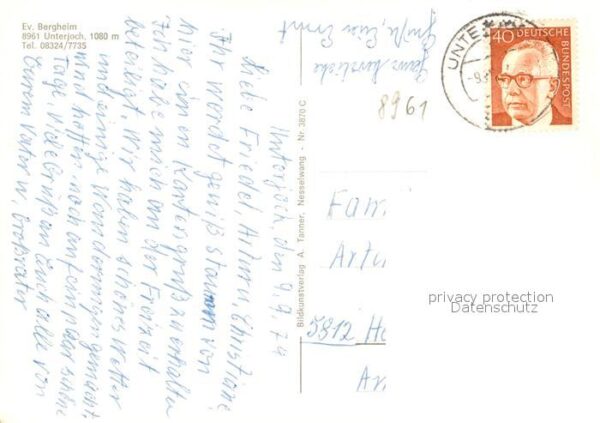 Ev. Bergheim
8961 Unterjoch, 1080 m
Tel. 08324/7735
Unterjoch, den 9.9.79
Liebe Friedel, Christiane,
Ihr werdet gewiß staunen von
hier einen Kartengruß zu erhalten
Ich habe mich an der Freizeit
beteiligt. Wir haben schönes Wetter
und einige Wanderungen gemacht,
und hoffen noch auf ein paar schöne
Tage. Viele Grüße an Euch alle von
Eurem Vater u. Großvater
Ganz herzliche
Grüße, Euer Ernst
Bildkunstverlag A. Tanner, Nesselwang · Nr 3870 C
8961
UNTE
40 DEUTSCHE BUNDESPOST
Fam
Artu
5912 H
privacy protection
Datenschutz